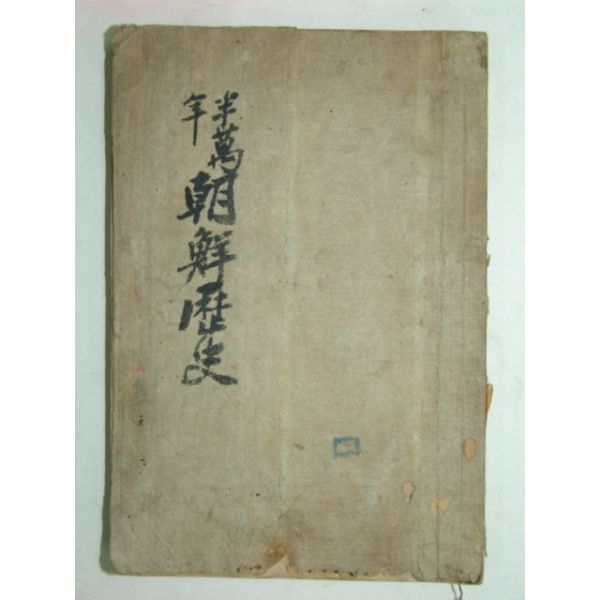 半萬年
朝鮮歷史